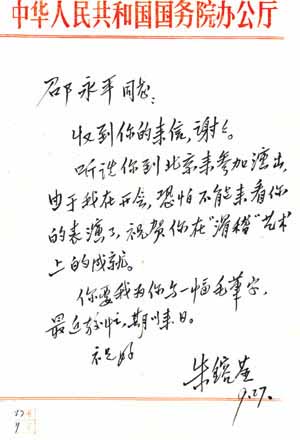 中华人民共和国国务院办公厅
邵永平同志：
收到你的来信，谢谢。
听说你到北京来参加演出，
由于我在开会，恐怕不能来看你
的表演了，祝贺你在“滑稽”艺术
上的成就。
你要我为你写一幅毛笔字，
最近较忙，期以来日。
祝好
朱镕基
9.27.